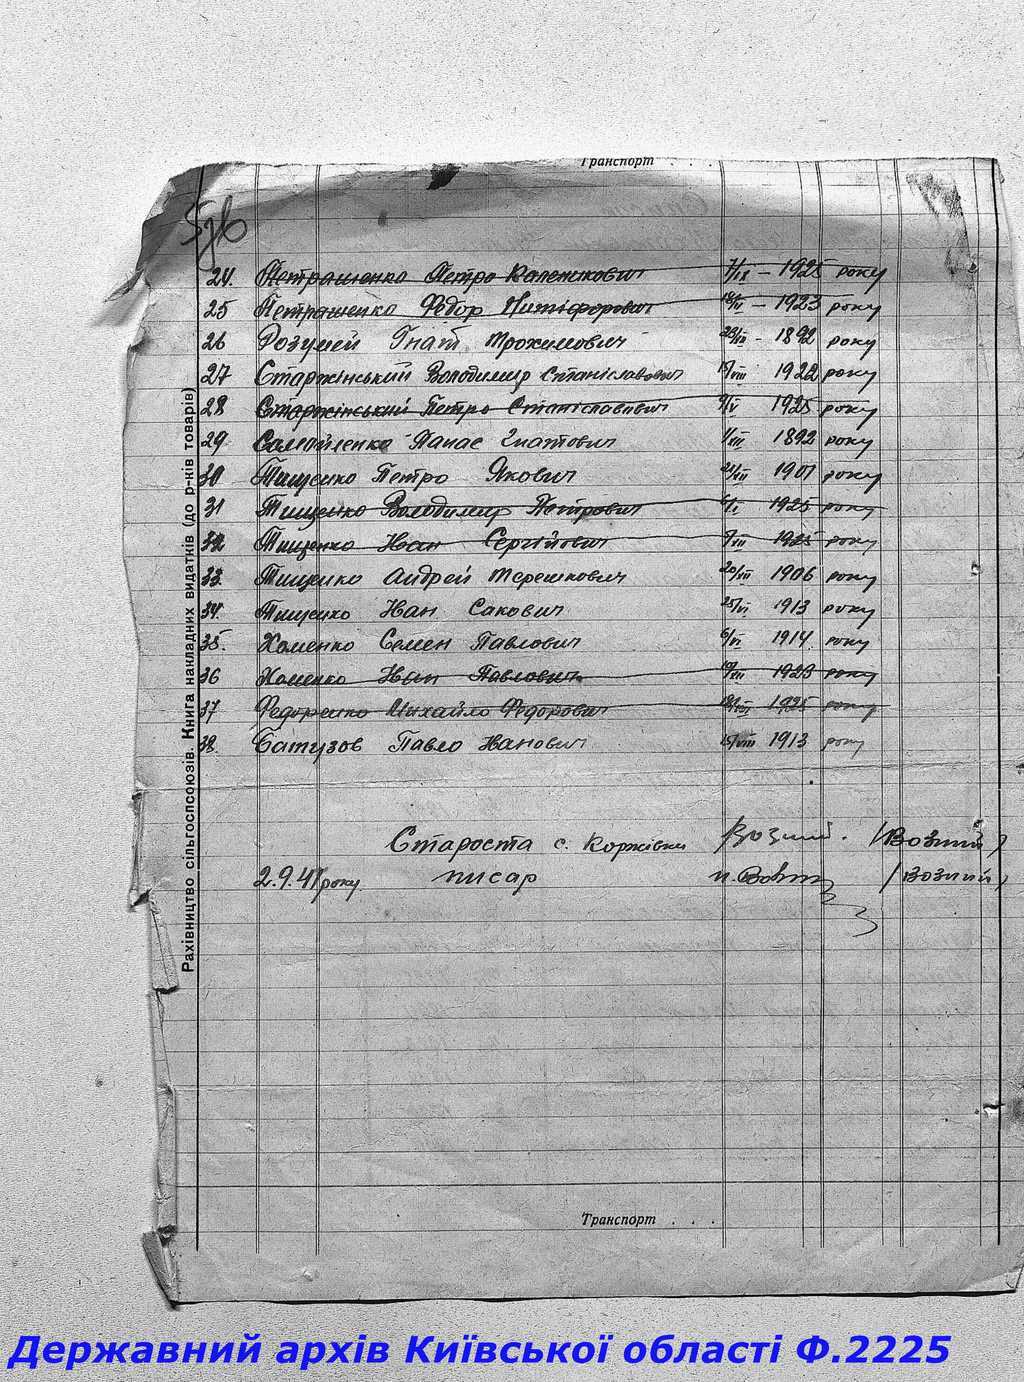 Транспорт . . .
24. Петрашенко Петро Каленикович 7/IX – 1925 року
25 Петрашенко Федор Никифорович – 1923 року
26 Розумей Гнат Трохимович – 1892 року
27 Старжінський Володимир Станіславович 15/VIII 1922 року
28 Старжінський Петро Станіславович 9/V 1925 року
29 Самойленко Панас Гнатович 1/VII 1892 року
30 Тищенко Петро Якович 1901 року
31 Тищенко Володимир Петрович 1925 року
32 Тищенко Іван Сергійович 1925 року
33. Тищенко Андрей Терешкович 20/XII 1906 року
34. Тищенко Іван Сакович 25/VI 1913 року
35. Хоменко Семен Павлович 6/VI 1914 року
36 Хоменко Іван Павлович 1923 року
37 Федоренко Михайло Федорович 1925 року
38. Батузов Павло Іванович 15/VIII 1913 року
Староста с. Коржівки Возний. (Возний)
2.9.41 року писар (Возний)
Транспорт . . .
Рахівництво сільгоспсоюзів. Книга накладних видатків (до р-ків товарів)
Державний архів Київської області Ф.2225